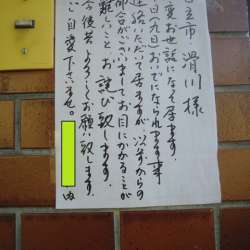 日立市 滑川様
変お世話になって居ます。
日（九日）おいでになられます事
連絡いただいて居ますが、以前からの
都合がございましてお目にかかることが
難しいこと お詫び致します。
今後共よろしくお願い致します。
ご自愛下さいませ。